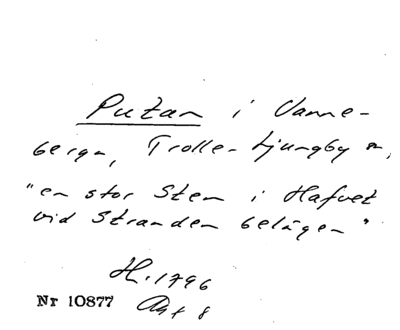 Putan i Vanne-
berga, Trolle-Ljungby sn,
"en stor Sten i Hafvet
vid Stranden belägen"
H. 1796
Nr 10877 Akt 8